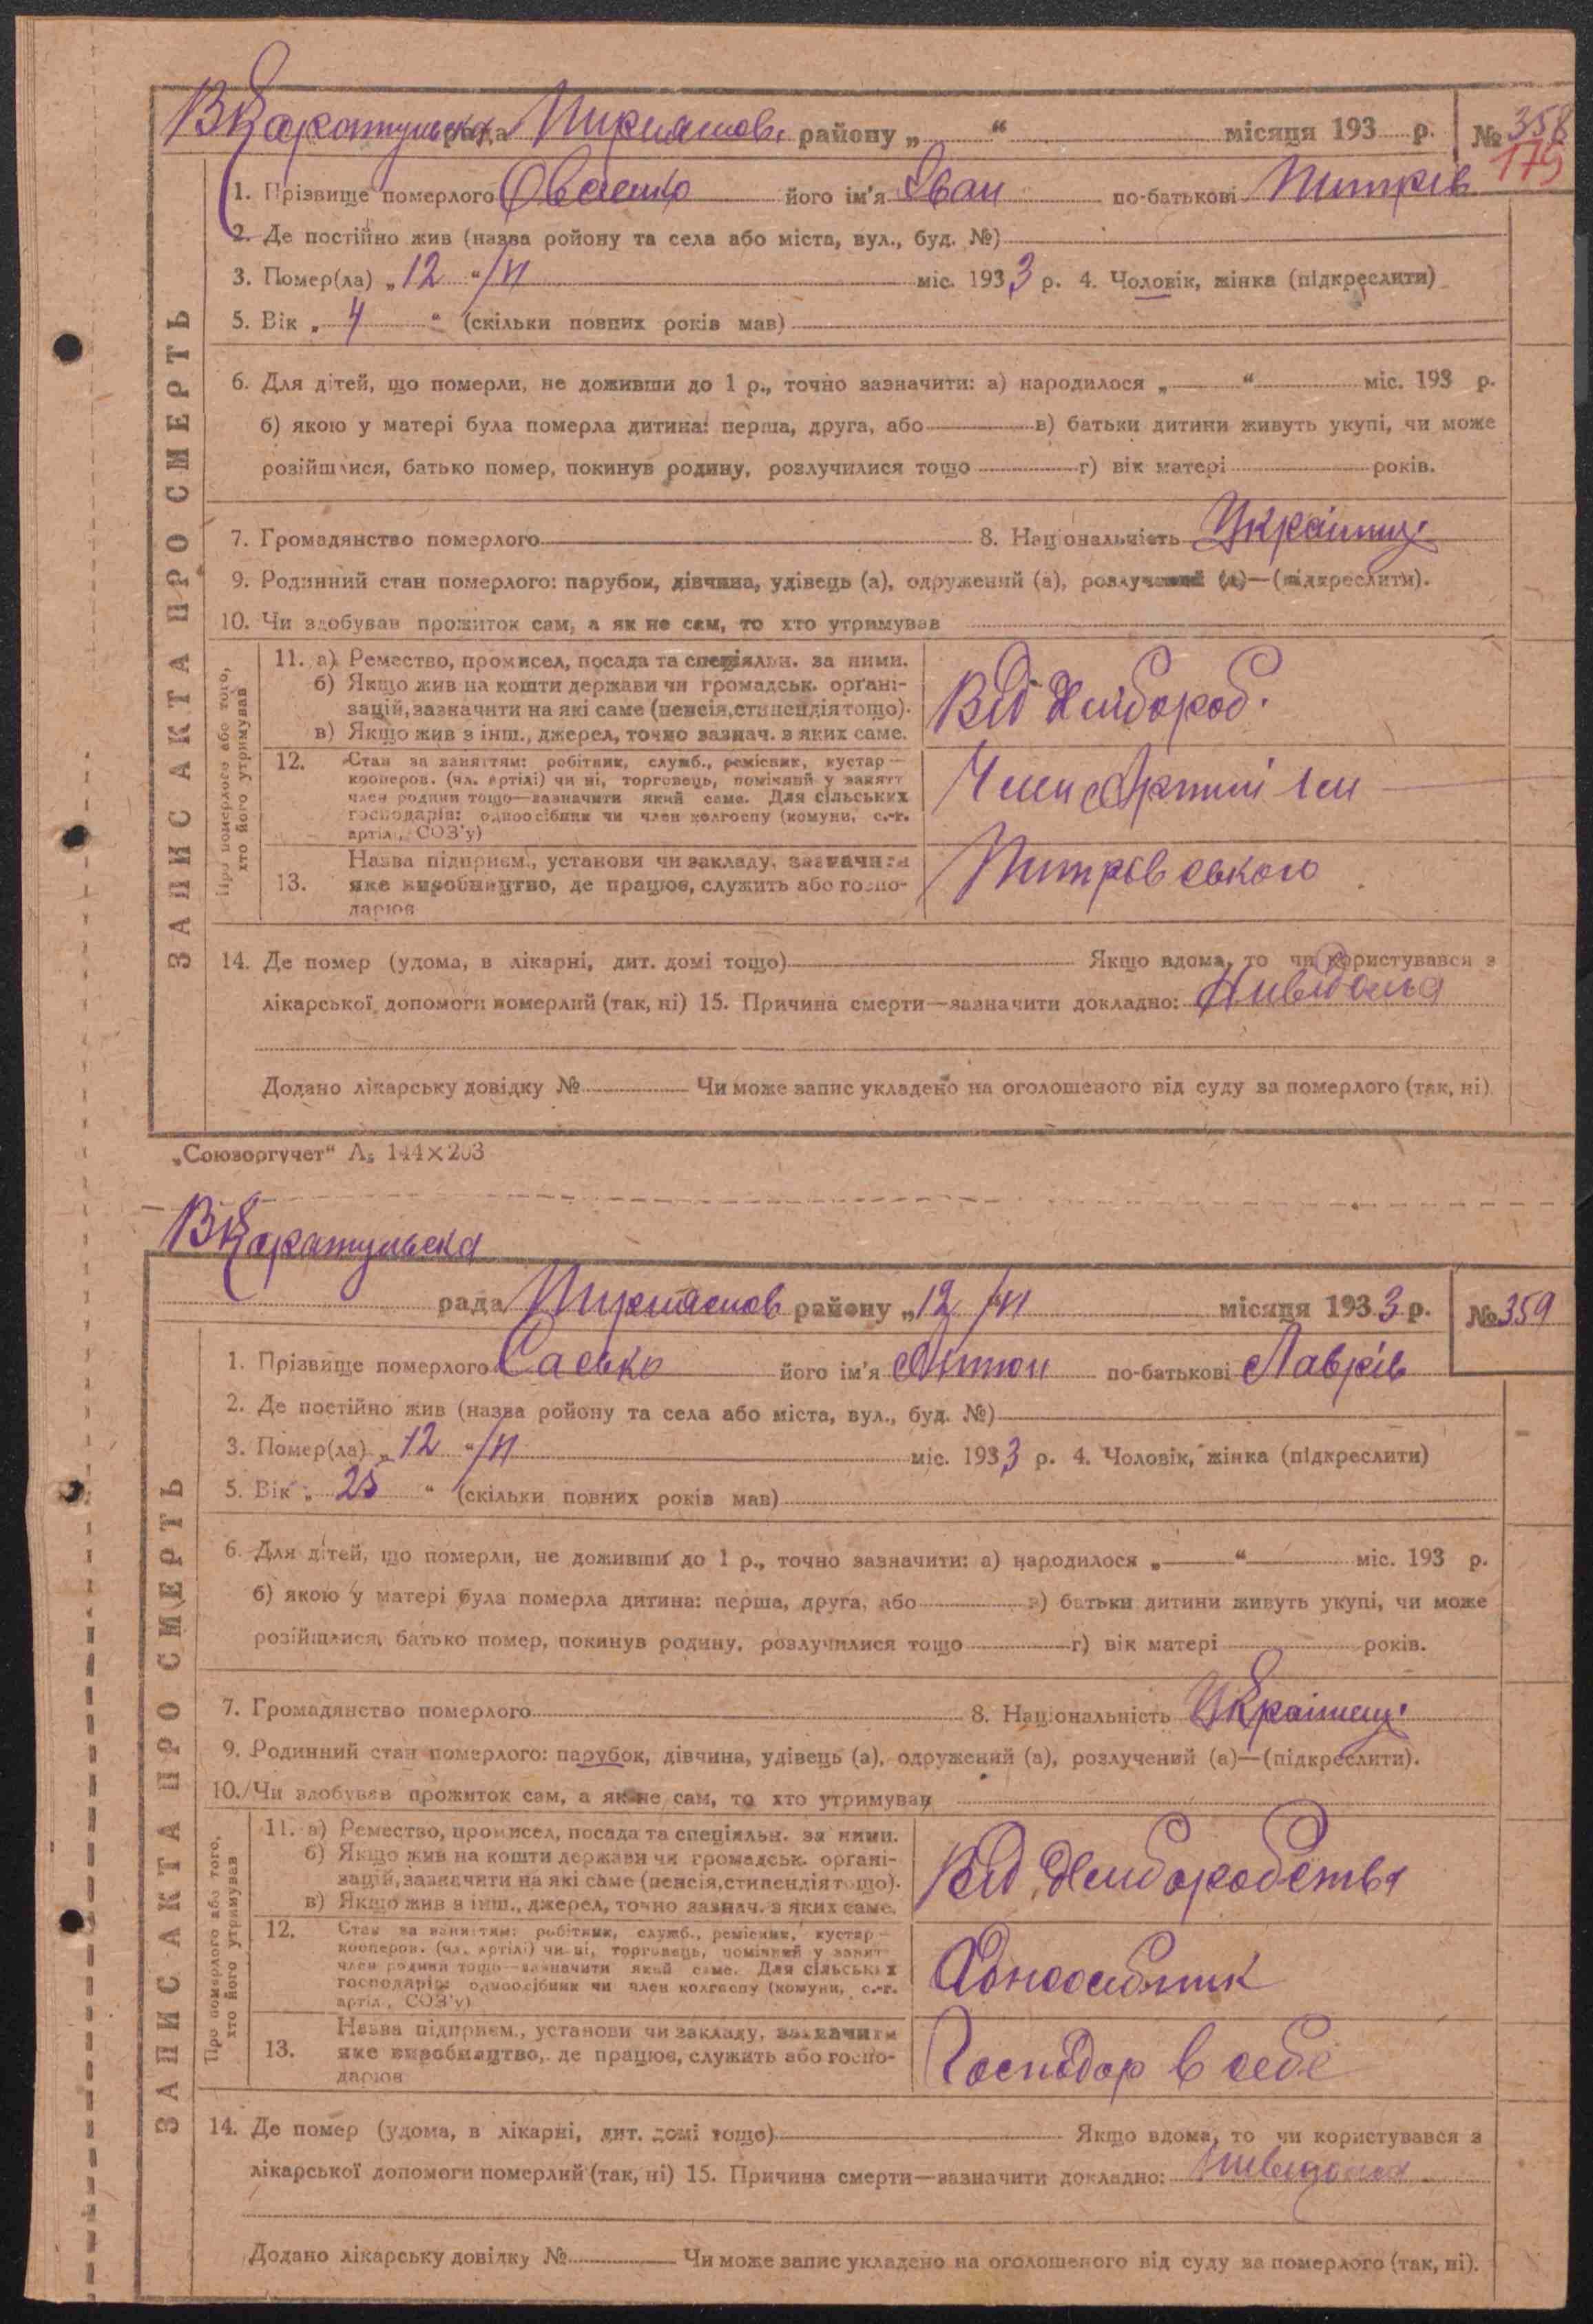 В Каратульська рада район у „ “ місяця 193 р. № 358
179
1. Прізвище померлого його ім'я Іван по-батькові
2. Де постійно жив (назва ройону та села або міста, вул., буд. №)
3. Помер(ла) „12 “/VI міс. 1933 р. 4. Чоловік, жінка (підкреслити)
5. Вік „ 4 “ (скільки повних років мав)
6. Для дітей, що померли, не доживши до 1 р., точно зазначити: а) народилося „ “ міс. 193 р.
б) якою у матері була померла дитина: перша, друга, або в) батьки дитини живуть укупі, чи може
розійшлися, батько помер, покинув родину, розлучилися тощо г) вік матері років.
7. Громадянство померлого 8. Національність Україниц.
9. Родинний стан померлого: парубок, дівчина, удівець (а), одружений (а), розлучений (а)—(підкреслити).
10. Чи здобував прожиток сам, а як не сам, то хто утримував
ЗАПИС АКТА ПРО СМЕРТЬ
Про померлого або того,
хто його утримував
11. а) Ремество, промисел, посада та спеціяльн. за ними.
б) Якщо жив на кошти держави чи громадськ. органі-
зацій, зазначити на які саме (пенсія, стипендія тощо).
в) Якщо жив з інш., джерел, точно зазнач. з яких саме.
Від Хлібороб.
12. Стан за заняттям: робітник, служб., ремісник, кустар—
кооперов. (чл. артілі) чи ні, торговець, помічний у занятт
член родини тощо—зазначити який саме. Для сільських
господарів: одноосібник чи член колгоспу (комуни, с.-г.
артіл., СОЗ'у)
Член Артілі
13. Назва підприєм., установи чи закладу, зазначити
яке виробництво, де працює, служить або госпо-
дарює
14. Де помер (удома, в лікарні, дит. домі тощо) Якщо вдома, то чи користувався з
лікарської допомоги померлий (так, ні) 15. Причина смерти—зазначити докладно:
Додано лікарську довідку № Чи може запис укладено на оголошеного від суду за померлого (так, ні)
„Союзоргучет“ А₅ 144×203
В Каратульська
рада район у „12 “/VI місяця 1933 р. № 359
1. Прізвище померлого Сасько його ім'я Антон по-батькові Лаврів
2. Де постійно жив (назва ройону та села або міста, вул., буд. №)
3. Помер(ла) „12 “/VI міс. 1933 р. 4. Чоловік, жінка (підкреслити)
5. Вік „ 25 “ (скільки повних років мав)
6. Для дітей, що померли, не доживши до 1 р., точно зазначити: а) народилося „ “ міс. 193 р.
б) якою у матері була померла дитина: перша, друга, або в) батьки дитини живуть укупі, чи може
розійшлися, батько помер, покинув родину, розлучилися тощо г) вік матері років.
7. Громадянство померлого 8. Національність Україниц.
9. Родинний стан померлого: парубок, дівчина, удівець (а), одружений (а), розлучений (а)—(підкреслити).
10. Чи здобував прожиток сам, а як не сам, то хто утримував
ЗАПИС АКТА ПРО СМЕРТЬ
Про померлого або того,
хто його утримував
11. а) Ремество, промисел, посада та спеціяльн. за ними.
б) Якщо жив на кошти держави чи громадськ. органі-
зацій, зазначити на які саме (пенсія, стипендія тощо).
в) Якщо жив з інш., джерел, точно зазнач. з яких саме.
Від Хліборобства
12. Стан за заняттям: робітник, служб., ремісник, кустар—
кооперов. (чл. артілі) чи ні, торговець, помічний у занят
член родини тощо—зазначити який саме. Для сільських
господарів: одноосібник чи член колгоспу (комуни, с.-г.
артіл., СОЗ'у)
Одноосібник
13. Назва підприєм., установи чи закладу, зазначити
яке виробництво, де працює, служить або госпо-
дарює
Господар в себе
14. Де помер (удома, в лікарні, дит. домі тощо) Якщо вдома, то чи користувався з
лікарської допомоги померлий (так, ні) 15. Причина смерти—зазначити докладно:
Додано лікарську довідку № Чи може запис укладено на оголошеного від суду за померлого (так, ні).